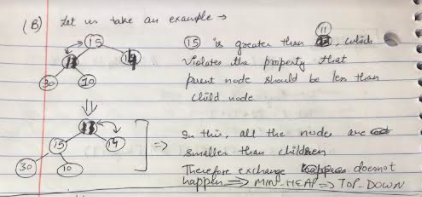 (B) Let us take an example →
15
14
30
10
(15) is greater than 11, which
violates the property that
parent node should be less than
child node
⇓
15
14
30
10
⇒ In this, all the nodes are
smaller than children
Therefore exchange doesnot
happen ⇒ MIN-HEAP ⇒ TOP-DOWN